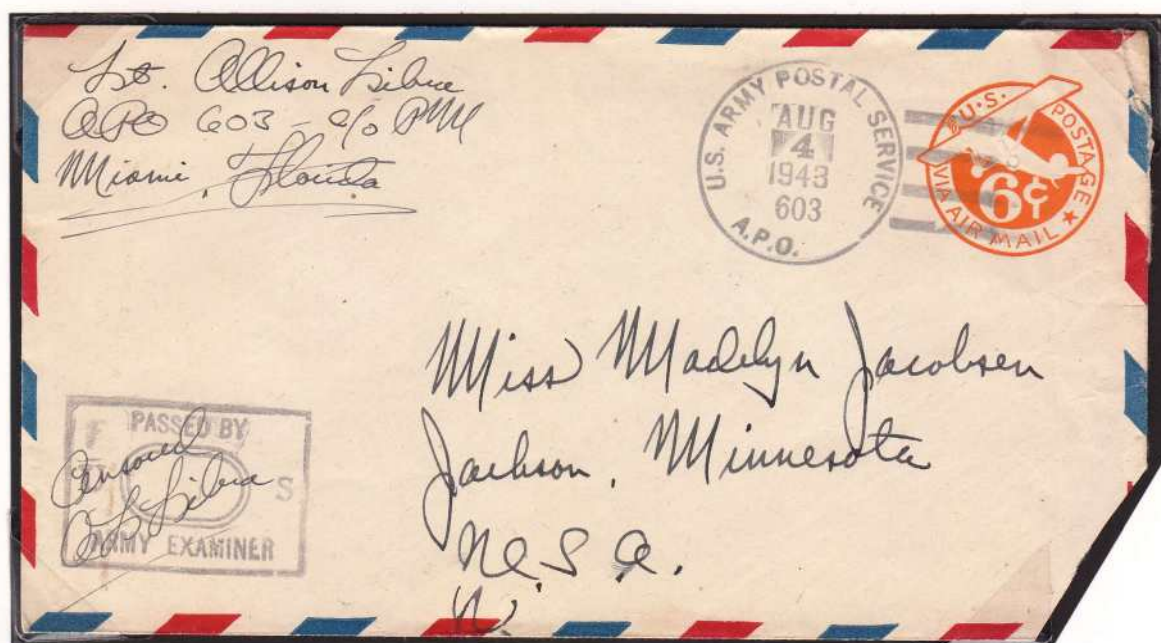 Lt. Allison Libra
APO 603 - c/o PM
Miami, Florida
U.S. ARMY POSTAL SERVICE
AUG
4
1943
603
A.P.O.
U.S. POSTAGE
6¢
VIA AIR MAIL
Miss Madelyn Jacobsen
Jackson, Minnesota
U.S.A.
PASSED BY
S
ARMY EXAMINER
Censored
A L Libra